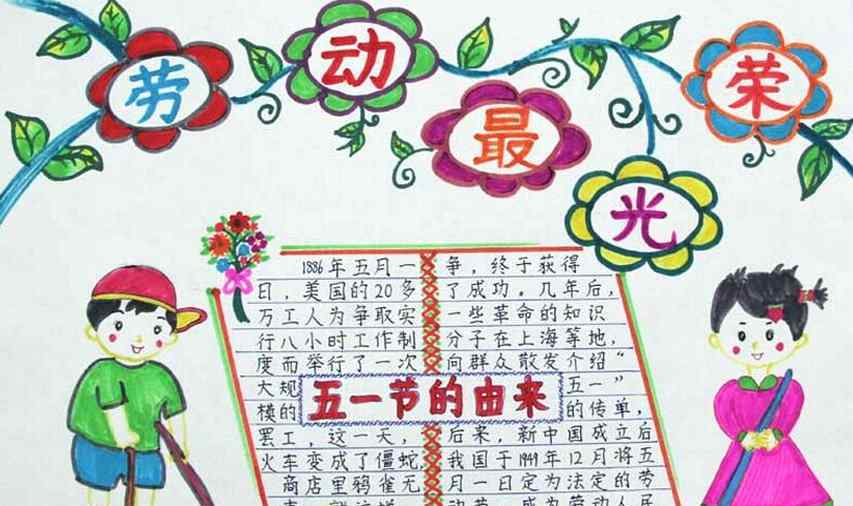 劳动最光荣
五一节的由来
1886年五月一
日，美国的20多
万工人为争取实
行八小时工作制
度而举行了一次
大规
模的
罢工，这一天，
火车变成了僵蛇，
商店里鸦雀无
争，终于获得
了成功。几年后，
一些革命的知识
分子在上海等地，
向群众散发介绍“
五一”
的传单，
后果，新中国成立后
我国于1949年12月将五
月一日定为法定的劳